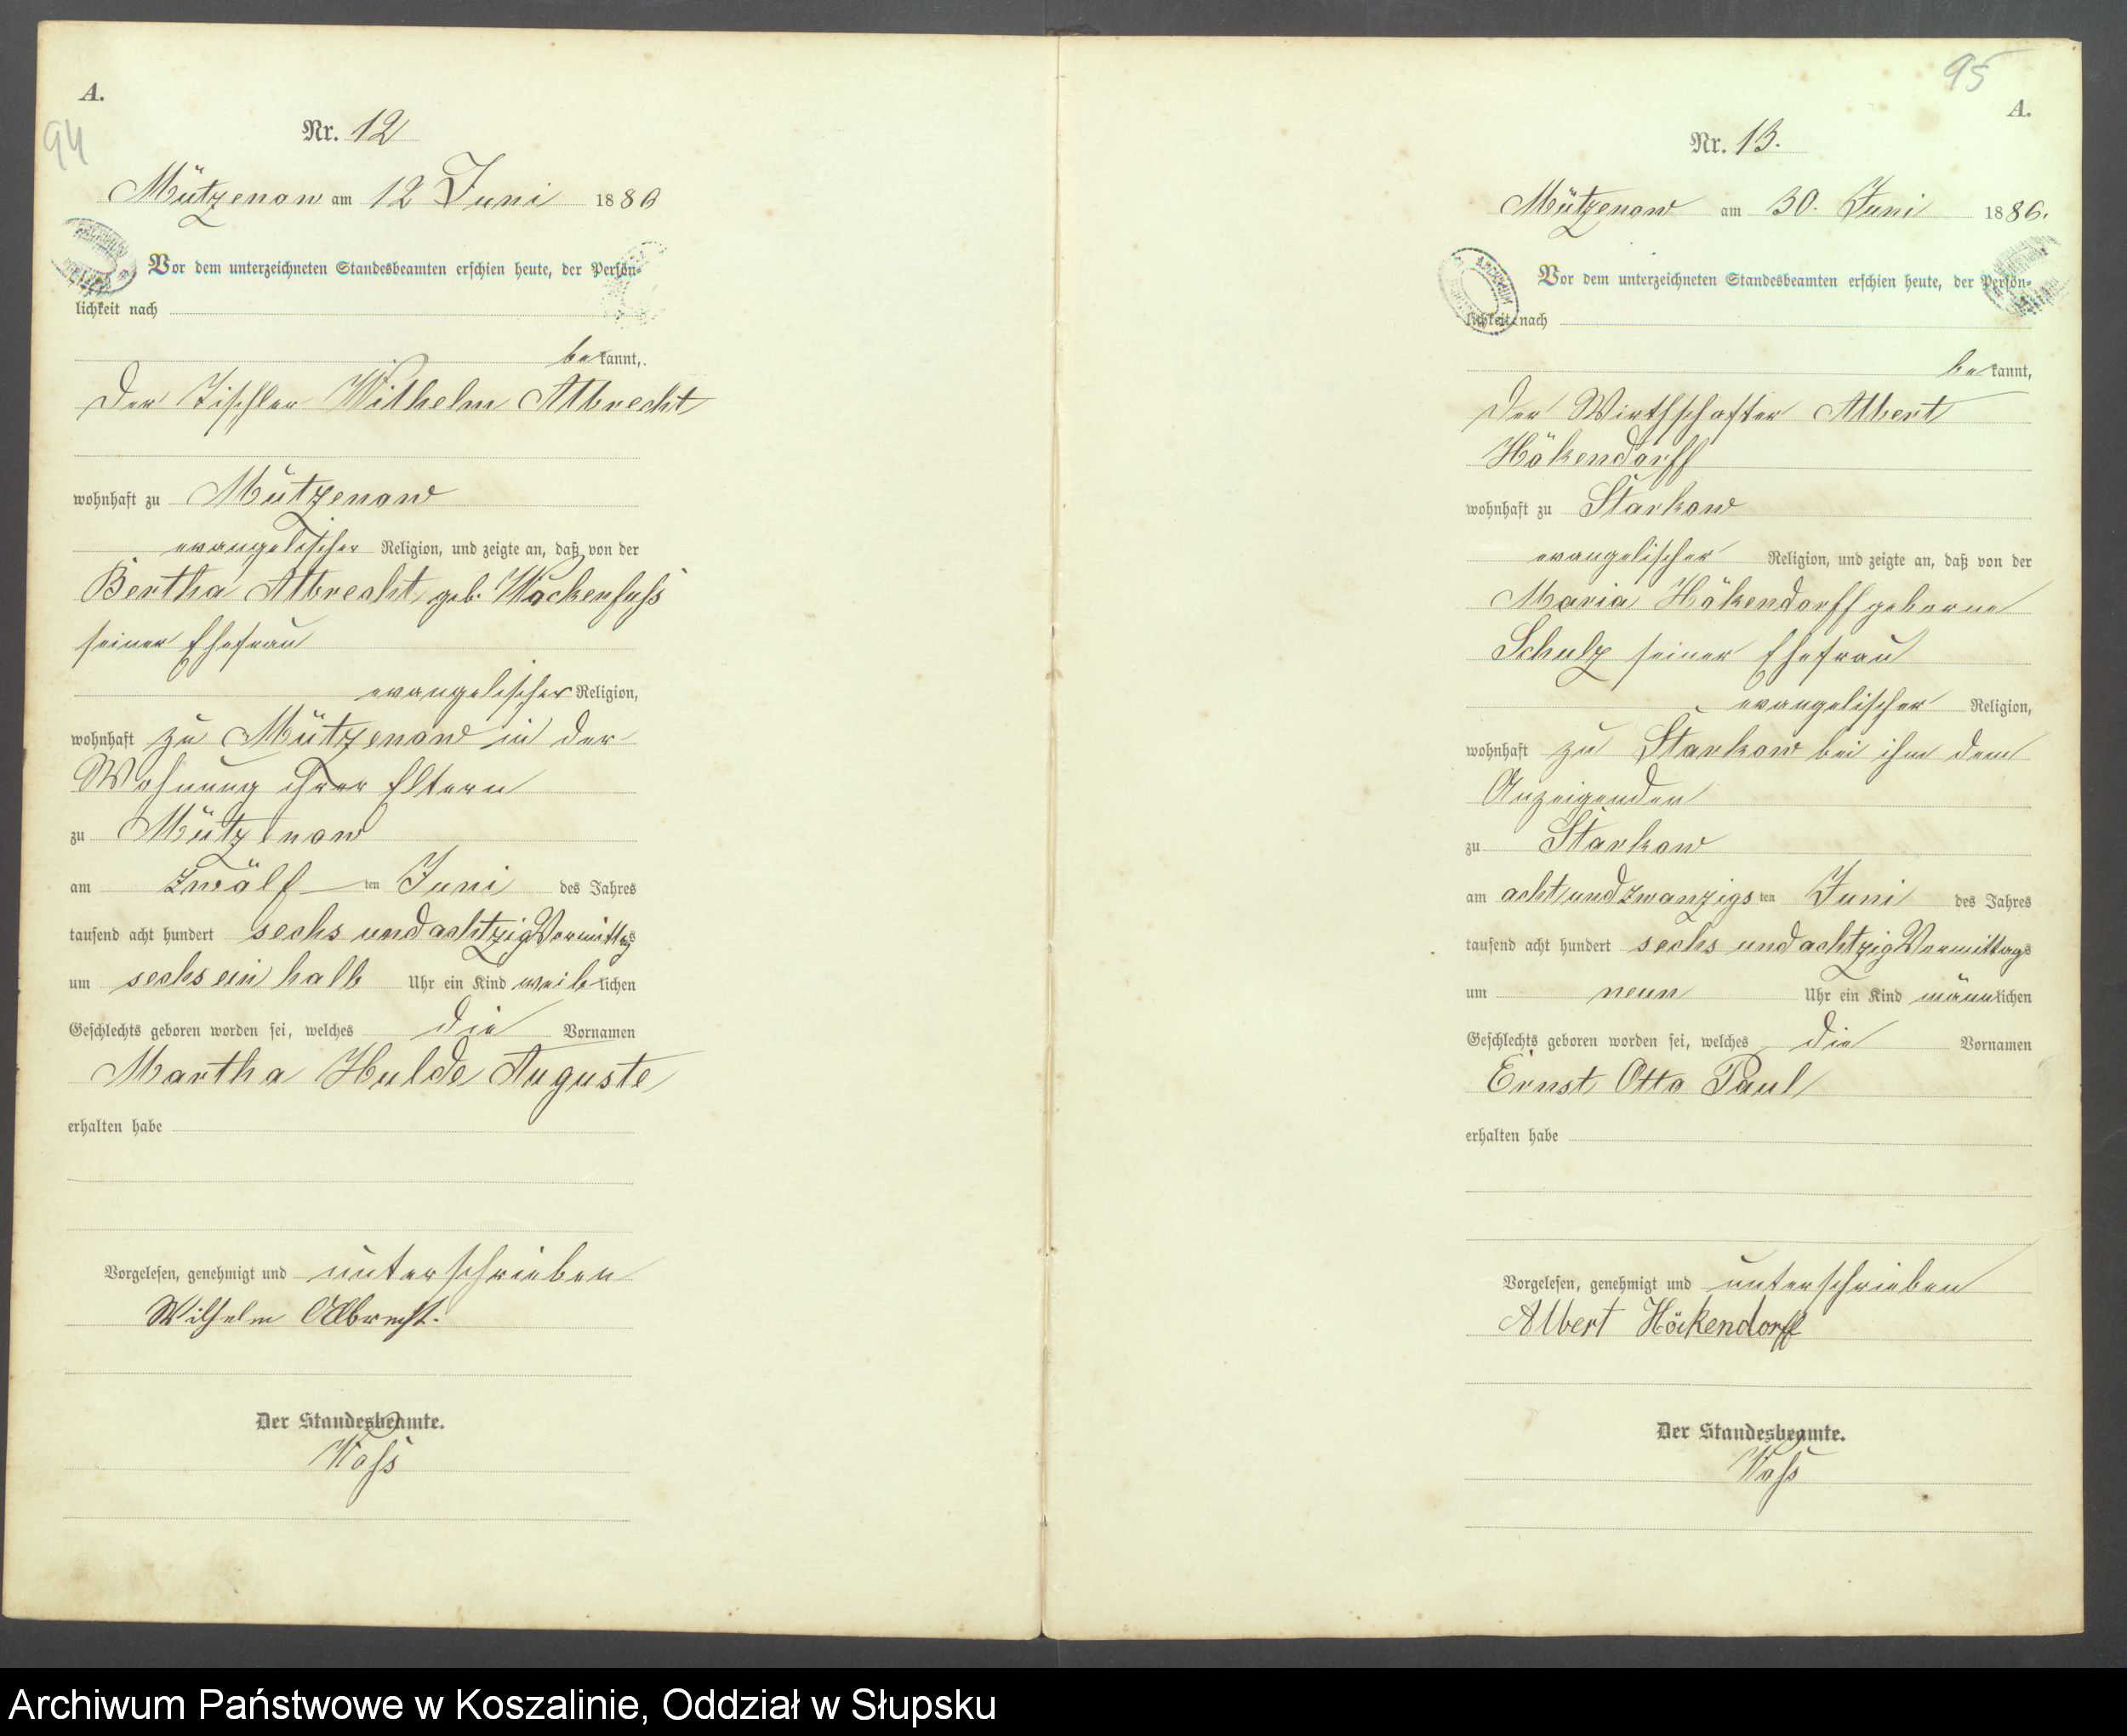 A.
94
Nr. 12
Mützenow am 12 Juni 1886
Vor dem unterzeichneten Standesbeamten erschien heute, der Persön-
lichkeit nach
bekannt,
der Tischler Wilhelm Albrecht
wohnhaft zu Mützenow
evangelischer Religion, und zeigte an, daß von der
Bertha Albrecht geb. Wockenfuss
seiner Ehefrau
evangelischer Religion,
wohnhaft zu Mützenow in der
Wohnung ihrer Eltern
zu Mützenow
am zwölf ten Juni des Jahres
tausend acht hundert sechs und achtzig Vormittags
um sechs ein halb Uhr ein Kind weiblichen
Geschlechts geboren worden sei, welches die Vornamen
Martha Hulde Auguste
erhalten habe
Vorgelesen, genehmigt und unterschrieben
Wilhelm Albrecht.
Der Standesbeamte.
Voss
95
A.
Nr. 13.
Mützenow am 30. Juni 1886.
Vor dem unterzeichneten Standesbeamten erschien heute, der Persön-
lichkeit nach
bekannt,
der Wirthschafter Albert
Hökendorff
wohnhaft zu Starkow
evangelischer Religion, und zeigte an, daß von der
Maria Hökendorff geborne
Schulz seiner Ehefrau
evangelischer Religion,
wohnhaft zu Starkow bei ihm dem
Anzeigenden
zu Starkow
am acht und zwanzigsten Juni des Jahres
tausend acht hundert sechs und achtzig Vormittags
um neun Uhr ein Kind männlichen
Geschlechts geboren worden sei, welches die Vornamen
Ernst Otto Paul
erhalten habe
Vorgelesen, genehmigt und unterschrieben
Albert Höckendorff
Der Standesbeamte.
Voss
Archiwum Państwowe w Koszalinie, Oddział w Słupsku